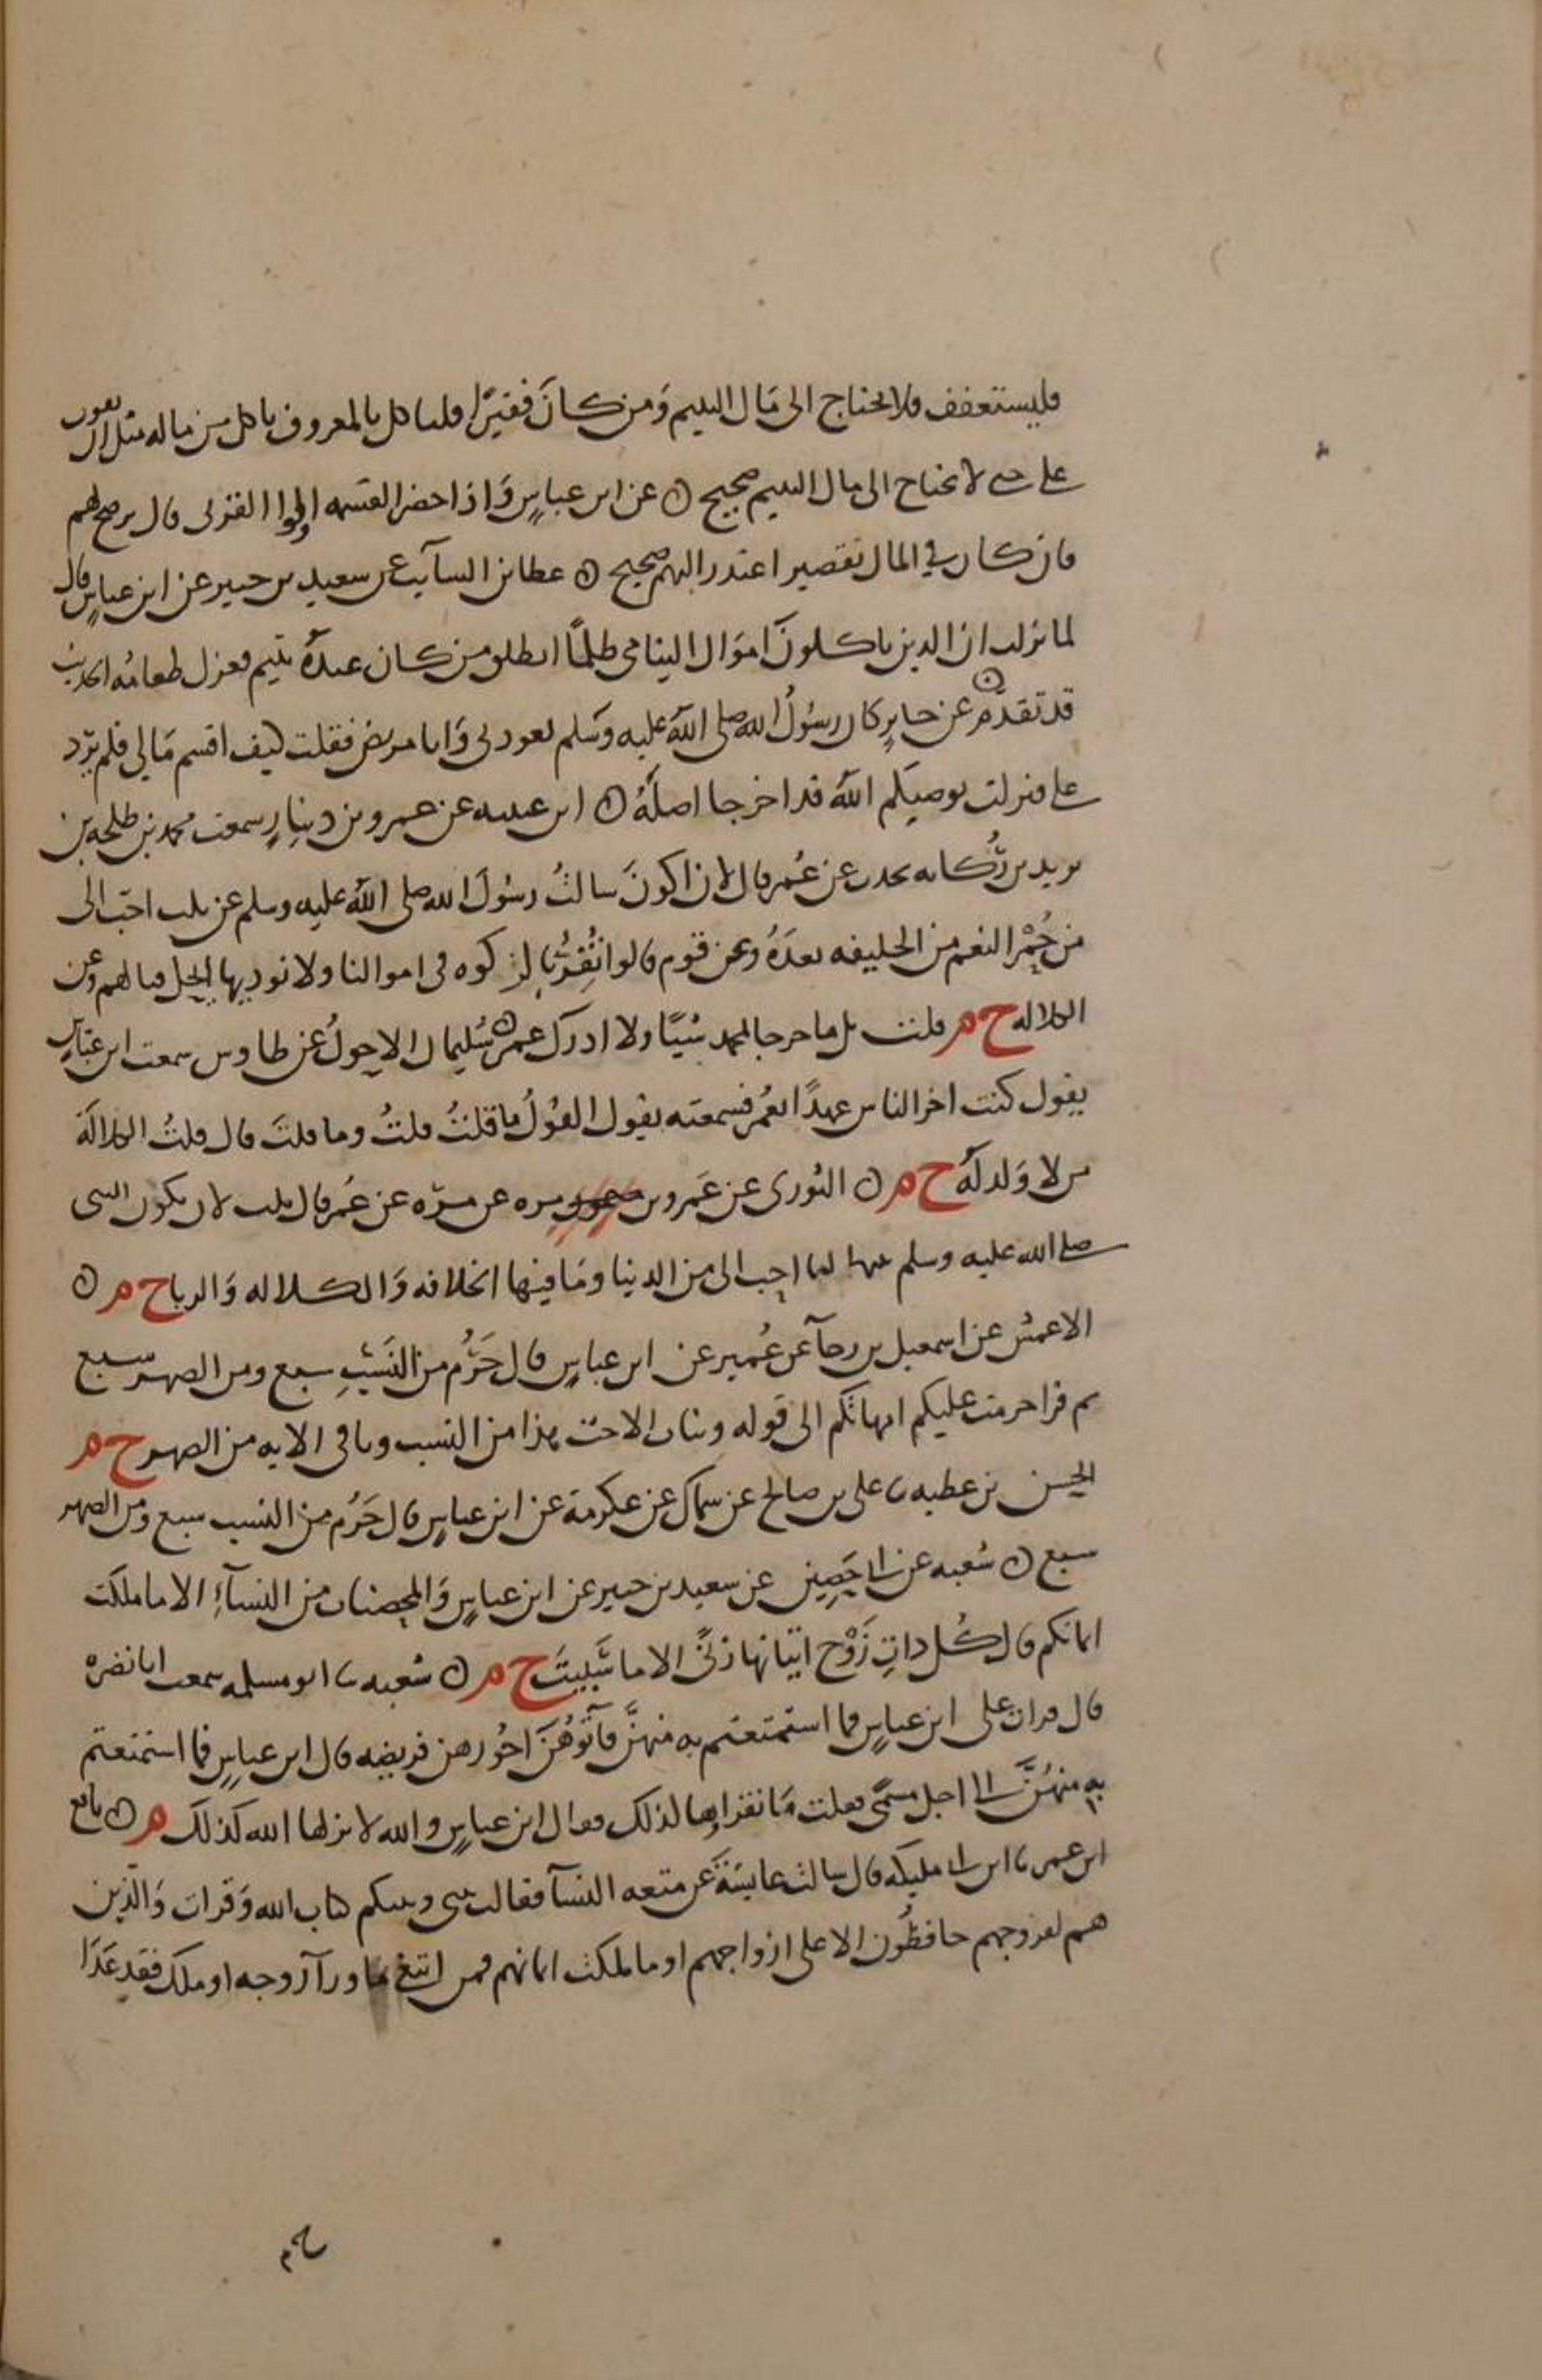 فليستعفف فلا يحتاج الى مال اليتيم ومن كان فقيرًا فلياكل بالمعروف ياكل من ماله مثل ان يقوت
على حى لا يحتاج الى مال اليتيم صحيح ن عن ابن عباسٍ واذا حضر القسمه اولوا القربى قال يرضح لهم
فان كان في المال تقصير اعتذر اليهم صحيح ن عطا بن السآيب عن سعيد بن جبير عن ابن عباسٍ قال
لما نزلت ان الذين ياكلون اموال اليتامى ظلمًا انطلق من كان عندهُ يتيم فعزل طعامهُ الحديث
قد تقدّم ن عن جابرٍ كان رسُولُ الله صلى اللهُ عليه وسَلم يعودنى وَانا مريض فقلت كيف اقسم مَالي فلم يَرّد
على فنزلت يوصيكم اللهُ قد اخرجا اصلهُ ن ابن عيينه عن عمرو بن دينارٍ سمعت محمد بن طلحه بن
يزيد بن رُكانه يحدث عن عُمر قال لان اكونَ سالتُ رسُولَ الله صلى اللهُ عليه وسلم عن ثلث احبّ الى
من حُمْر النعم من الخليفه بعدَهُ وعن قوم قالوا نُقِرُّ بالزكوه فى اموالنا ولا نوديها ايحل قتالهم وعن
الكلاله خ م قلت بل ما خرجا لمحمد شيًا ولا ادرك عمر ن سُليمان الاحولُ عن طاوس سمعت ابن عباسٍ
يقول كنت اخر الناس عهدًا بعُمر فسمعته يقول القولُ ما قلتُ قلتُ وما قلتَ قال قلتُ الكلالَة
من لا وَلد لَهُ خ م ن الثورى عن عَمرو بن مره عن مرّه عن عُمر قال ثلث لان يكون النبى
صلى الله عليه وسلم بينها لنا احب الى من الدنيا ومَا فيها الخلافه وَالكلاله وَالربا خ م ن
الاعمش عن اسمعيل بن رجآ عن عُمير عن ابن عباسٍ قال حَرُم من النَسَبِ سبع ومن الصهر سبع
ثم قرا حرمت عليكم امهاتكم الى قوله وبنات الاخت هذا من النسب وباقى الايه من الصهر خ م
الحسن بن عطيه ثنا على بن صالح عن سماك عن عكرمة عن ابن عباسٍ قال حَرُم من النسب سبع ومن الصهر
سبع ن شعبه عن ابى حَصِين عن سعيد بن جبير عن ابن عباسٍ وَالمحصنات من النسآءِ الا ما ملكت
ايمانكم قال كُل ذاتِ زَوْجٍ اتيانها زنًى الا ما سُبِيَتَ خ م ن شعبه ثنا ابو مسلمه سمعت ابا نضرة
قال قرات على ابن عباسٍ فما استمتعتم به منهنَّ فآتُوهُنَّ اجُورهن فريضه قال ابن عباسٍ فما استمتعتم
به منهُنَّ الى اجل مسَمًّى فقلت مَا نقراها لذلك فقال ابن عباسٍ والله لانزلها الله كذلكَ م ن نافع
ابن عمر ثنا ابن ابى مليكه قال سالت عايشةَ عن متعه النسآ فقالت بينى وبينكم كتاب الله وَقرات وَالّذين
هم لفروجهم حافظُون الا على ازواجهم او ما ملكت ايمانهم فمن ابتغى ما ورآ زوجه او ملك فقد عَدَا